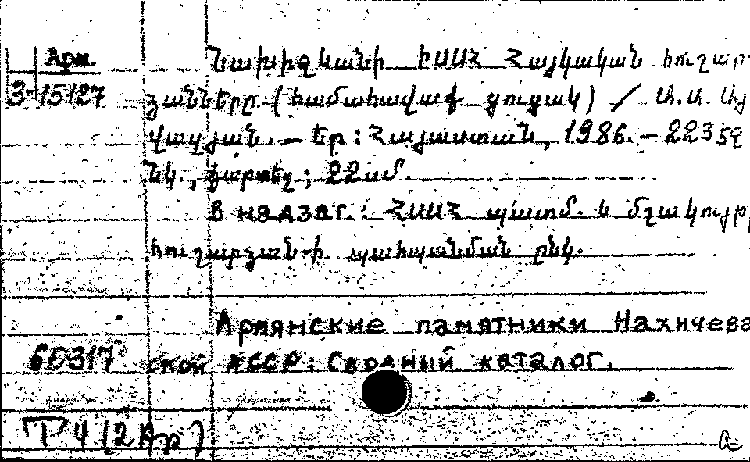 Арм.
Նախիջևանի ԻՍՍՀ Հայկական հուշար
3-15127
ձանները (համահավաք ցուցակ) / Ա.Ա. Այ
վազյան. — Եր: Հայաստան, 1986. — 223 էջ
նկ., քարտեզ; 22 սմ.
В надзаг.: ՀՍՍՀ պատմ. և մշակույթ
հուշարձան-ի պահպանման ընկ.
Армянские памятники Нахичева
60317 ской АССР: Сводный каталог.
Т 4 (2 Ар)